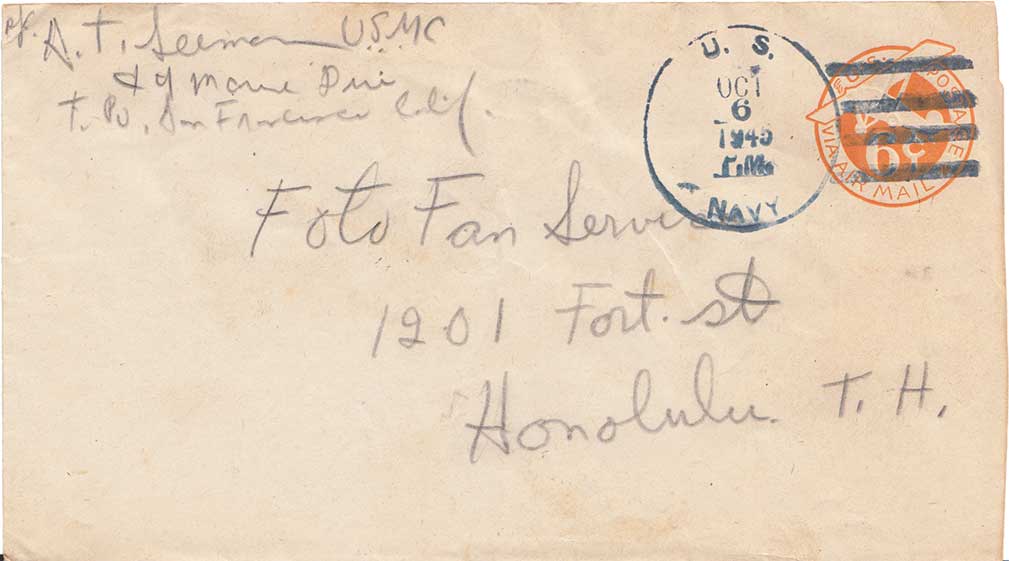 A. T. Seeman USMC
Marine Div
San Francisco Calif.
U. S.
OCT
6
1945
NAVY
U.S. POSTAGE
6¢
VIA AIR MAIL
Foto Fan Servi
1201 Fort. st
Honolulu. T. H.